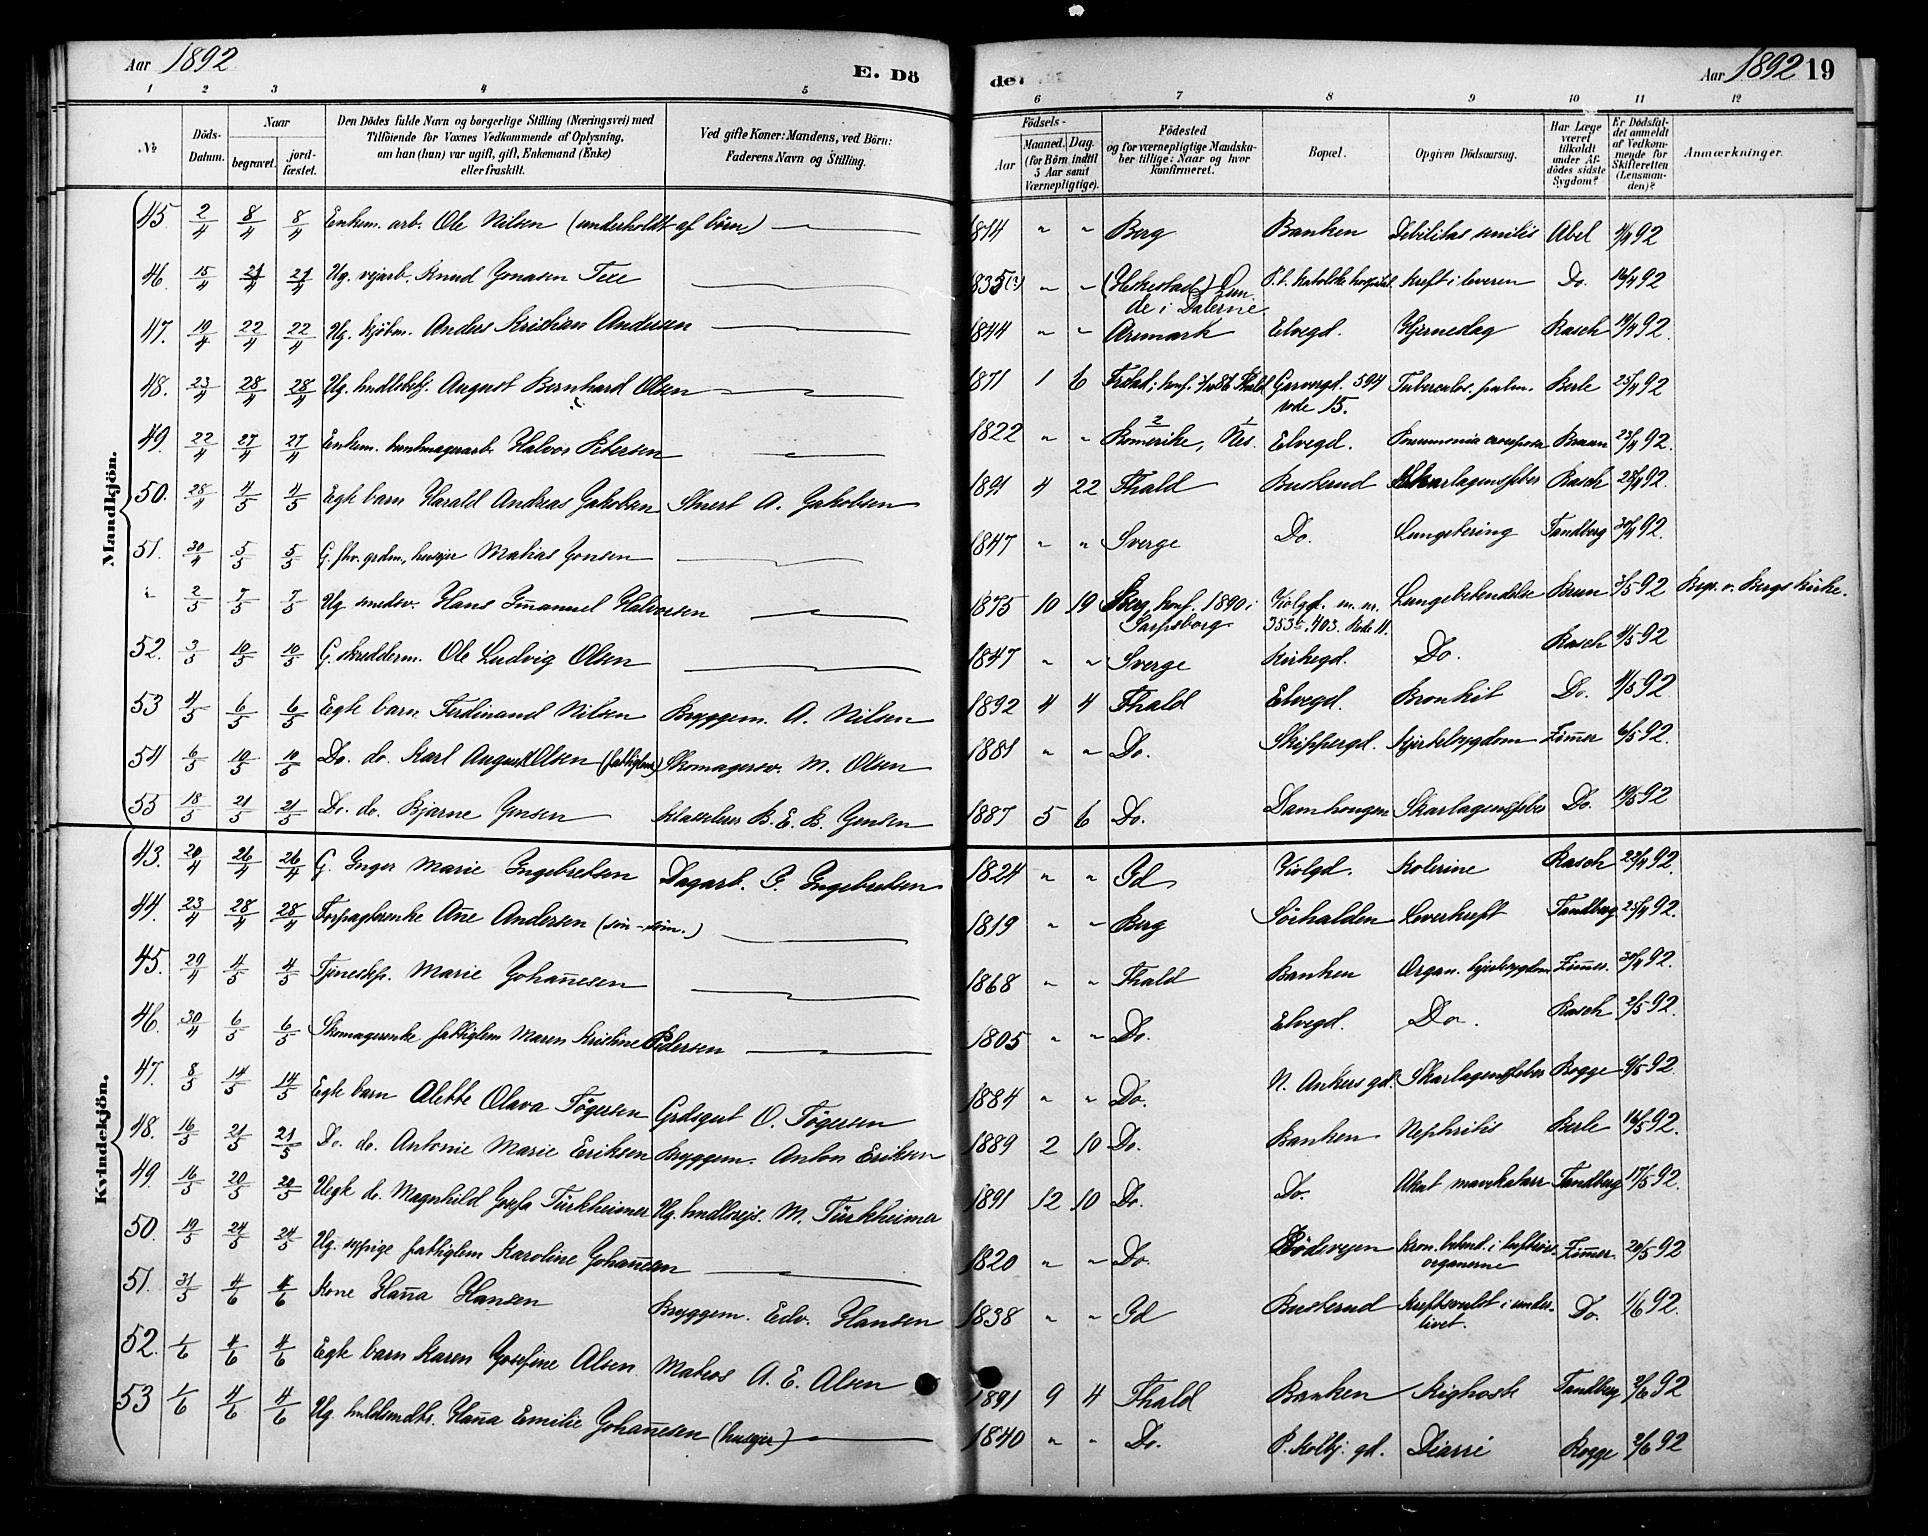 Aar 1892 E. Dö
de. Aar 1892 19
1 2 3 4 5 6 7 8 9 10 11 12
№ Döds-Datum. Naar begravet. jord-fæstet. Den Dödes fulde Navn og borgerlige Stilling (Næringsvei) med Tilföiende for Voxnes Vedkommende af Oplysning, om han (hun) var ugift, gift, Enkemand (Enke) eller fraskilt. Ved gifte Koner: Mandens, ved Börn: Faderens Navn og Stilling. Födsels- Aar Maaned. Dag. (for Börn indtil 5 Aar samt Værnepligtige). Födested og for værnepligtige Mandskaber tillige: Naar og hvor konfirmeret. Bopæl. Opgiven Dödsaarsag. Har Læge været tilkaldt under Afdödes sidste Sygdom? Er Dödsfaldet anmeldt af Vedkommende for Skifteretten (Lensmanden)? Anmærkninger.
Mandkjön.
45 2/4 8/4 8/4 Enkem. arb. Ole Nilsen (underholdt af börn) 1814 " " Berg Banken Debilitas senilis Abel 4/4 92
46. 15/4 21/4 21/4 Ug. vejarb. Knud Jonasen Teie 1835(?) " " (Heskestad) Lunde i Dalerne P.t. katolske hospital Kreft i leveren Do. 16/4 92
47. 19/4 22/4 22/4 Ug. kjöbm. Anders Kristian Andersen 1844 " " Aremark Elvegd. Hjerneslag Rasch 19/4 92.
48. 23/4 28/4 28/4 Ug. hndlsbetj. August Bernhard Olsen 1871 1 6 Fhald; konf. Fhald Garvergd. 594 rode 15. Tuberculos. pulm. Berle 25/4 92
49. 22/4 27/4 27/4 Enkem. Halvor Petersen 1822 " " Romerike, Nes Elvegd. Pneumonia crouposa Braun 23/4 92.
50. 28/4 4/5 4/5 Egte barn Harald Andreas Jakobsen Stuert A. Jakobsen 1891 4 22 Fhald Buskrud Skarlagensfeber Rasch 28/4 92.
51. 30/4 5/5 5/5 G. fhv. grdm., husejer Matias Jonsen 1847 " " Sverge Do. Lungetering Tandberg 30/4 92.
" 2/5 7/5 7/5 Ug. smedsv. Hans Imanuel Halvorsen 1875 10 19 Berg konf. 1890 i Sarpsborg Violgd. m. nr. 353b, 403. Rode 11. Lungebetendelse Brun 3/5 92 Begr. v. Bergs kirke.
52. 3/5 10/5 10/5 G. skredderm. Ole Ludvig Olsen 1847 " " Sverge Kirkegd. Do. Rasch 4/5 92
53 4/5 6/5 6/5 Egte barn Ferdinand Nilsen Byggem. A. Nilsen 1892 4 4 Fhald Elvegd. Bronkit Do. 4/5 92
54 6/5 10/5 10/5 Do. do. Karl August Olsen (fattiglem) Skomagersv. M. Olsen 1881 " " Do. Skippergd. Hjertesygdom Zim̄er 6/5 92.
55 18/5 21/5 21/5 Do. do. Bjarne Jensen Klasselærer B. E. B. Jensen 1887 5 6 Do. Damhaugen Skarlagensfeber Do. 19/5 92
Kvindekjön.
43. 20/4 26/4 26/4 G. Inger Marie Ingebretsen Dagarb. G. Ingebretsen 1824 " " Id Violgd. Kolerine Rasch 22/4 92.
44. 23/4 28/4 28/4 Forpagterenke An̄e Andersen 1819 " " Berg Sörhalden Leverkreft Tandberg 25/4 92.
45. 29/4 4/5 4/5 Tjenestep. Marie Johan̄esen 1868 " " Fhald Banken Organ. hjertesygdom Zim̄er. 30/4 92.
46. 30/4 6/5 6/5 Skomagerenke fattiglem Maren Kristine Pedersen 1805 " " Do. Elvegd. Do. Rasch 2/5 92
47. 8/5 14/5 14/5 Egte barn Alette Olava Tögersen Grdsgut O. Tögersen 1884 " " Do. N. Ankers gd. Skarlagensfeber Rogge 9/5 92
48. 16/5 21/5 21/5 Do. do. Antonie Marie Eriksen Byggem. Anton Eriksen 1889 2 10 Do. Banken Nephritis Berle 16/5 92.
49. 16/5 20/5 20/5 Uegte do. Magnhild Josefa Türkheimer Ug. hndlsrejs. M. Türkheimer 1891 12 10 Do. Do. Akut mavekatarr Tandberg 17/5 92.
50. 19/5 24/5 24/5 Ug. sypige fattiglem Karoline Johan̄esen 1820 " " Do. Rödevejen Kron. betend. i luftrörsorganerne Zim̄er. 20/5 92
51. 31/5 4/6 4/6 Kone Han̄a Hansen Byggem. Edv. Hansen 1838 " " Id Buskrud Kreftsvulst i underlivet. Do. 1/6 92.
52. 1/6 4/6 4/6 Egte barn Karen Josefine Alsen. Matros A. E. Alsen 1891 9 4 Fhald Banken Kighoste Tandberg 2/6 92
53 1/6 4/6 4/6 Ug. Han̄a Emilie Johan̄esen (husejer) 1840 " " Do. P. Kolbj. gd. Diarré Rogge 2/6 92